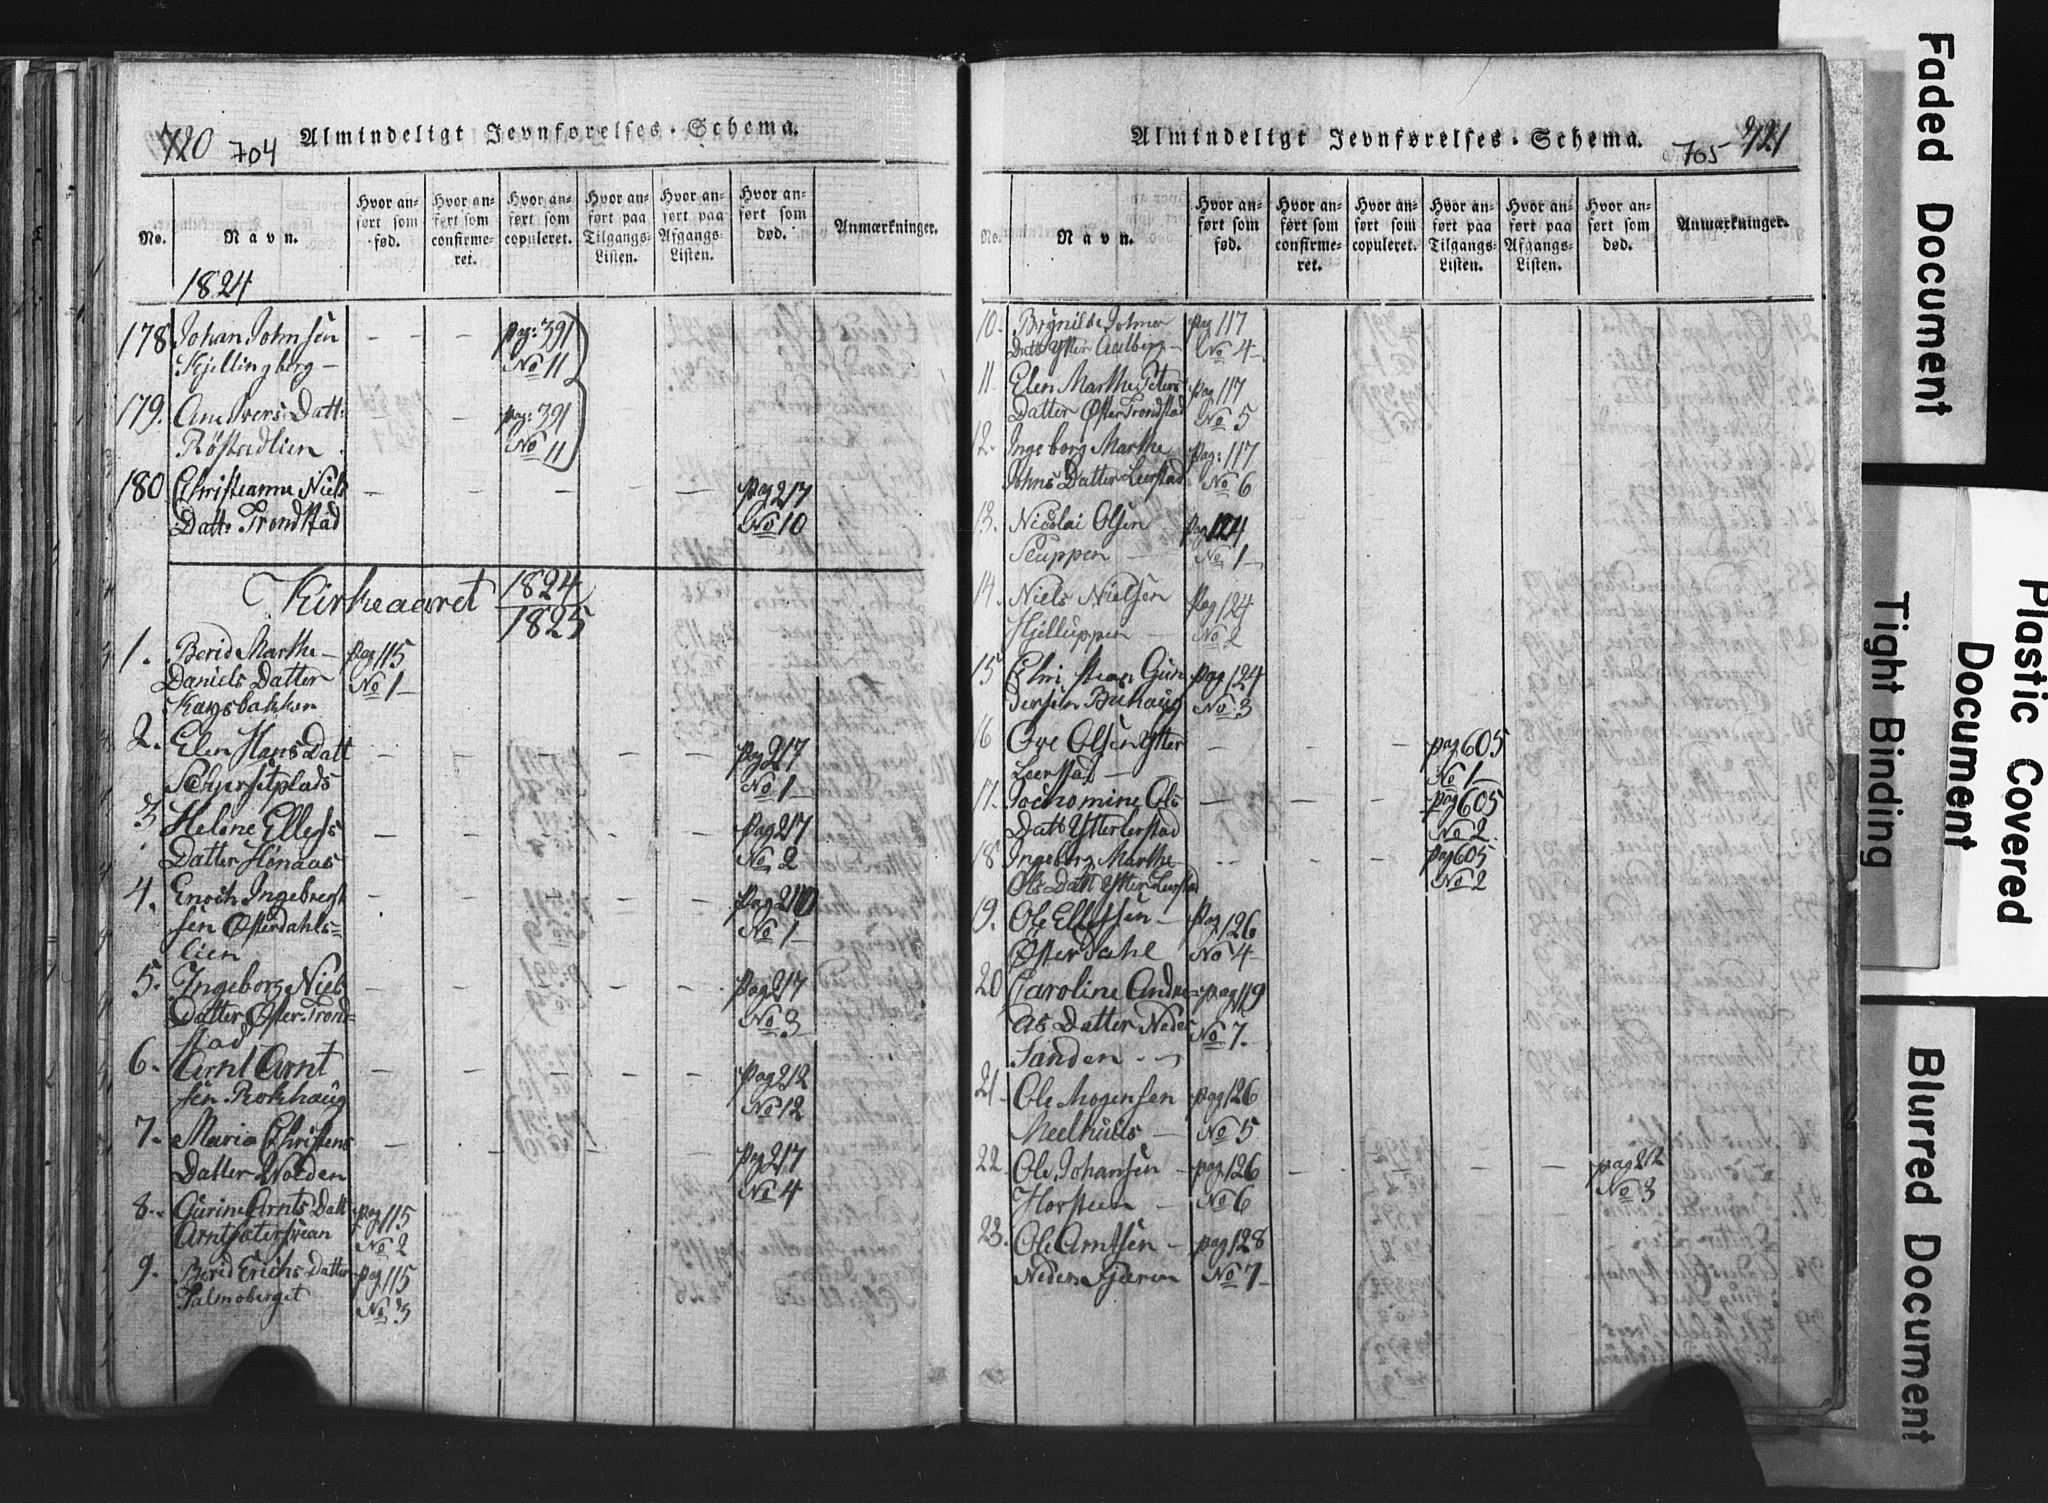 720 704 Almindeligt Jevnførelses-Schema.
No. Navn. Hvor anført som fød. Hvor anført som confirmeret. Hvor anført som copuleret. Hvor anført paa Tilgangs-Listen. Hvor anført paa Afgangs-Listen. Hvor anført som død. Anmærkninger.
1824
178 Johan Johnsen — — — pag: 391
Kjellingberg — No 11
179. Ane Ivers Datt: — pag: 391
Röstadlien No 11
180 Christianna Niels — — — — — Pag 217
Datt: Trondstad No 10
Kirkeaaret 1824
1825
1. Berid Marthe — Pag 115
Daniels Datter No 1
2. Elen Hans Datt — — — — — Pag 217
No 1
3. Helene Ellefs — — — — — Pag 217
Datter Hönaas No 2
4. Enoch Ingebregt — — — — — Pag 210
sen Østerdahls= No 1
lien
5. Ingeborg Niels — — — — — Pag 217
Datter Øster Trond= No 3
stad
6. Arnt Arnt — — — — — Pag 212
sen Rokhaug No 12
7. Maria Christens — — — — — Pag 217
Datter Wolden No 4
8. Gurine Arnts Datt Pag 115
No 2
9. Berid Erichs Datter Pag 115
Palmoberget No 3
Almindeligt Jevnførelses-Schema. 705 721
No. Navn. Hvor anført som fød. Hvor anført som confirmeret. Hvor anført som copuleret. Hvor anført paa Tilgangs-Listen. Hvor anført paa Afgangs-Listen. Hvor anført som død. Anmærkninger.
10. Brynilde Pag 117
Datt Ytter Aalberg — No 4
11. Elen Marthe Peters Pag 117
Datter Øster Trondstad No 5
12. Ingeborg Marthe Pag: 117
Johns Datter Leerstad No 6
13. Nicolai Olsen Pag 124
No 1
14. Niels Nielsen Pag 124
No 2
15 Christian Gun Pag 124
dersen No 3
16 Ove Olsen Ytter — — — pag 605
Leerstad — No 1
17. Jochomine Ols — — — pag 605
Datt Ytterlerstad No 2
18 Ingeborg Marthe — — — pag 605
Ols Datt Ytter Leerstad No 2
19. Ole Ellefsen — Pag 126
Øster Dahl No 4
20 Caroline Andre= pag 119
as Datter Neder No 7.
Sanden
21. Ole Mogensen pag 126
Meelhuus — No 5
22. Ole Johansen — pag 126 — — — — pag 212
Horsteen — No 6 No 3
23. Ole Arntsen — pag 128
No 7
Faded Document
Tight Binding
Plastic Covered
Document
Blurred Document